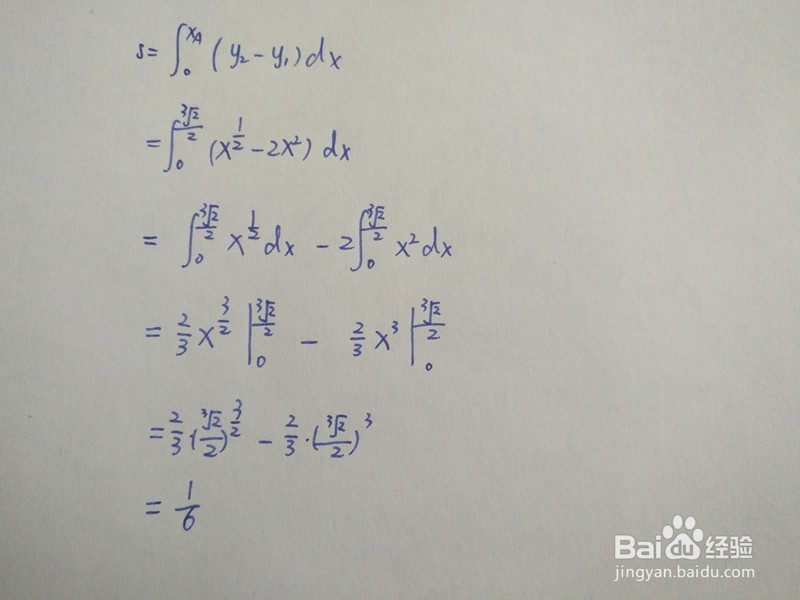 s = ∫₀^{x_A} (y₂ - y₁) dx
= ∫₀^{∛2/2} (x^{1/2} - 2x²) dx
= ∫₀^{∛2/2} x^{1/2} dx - 2∫₀^{∛2/2} x² dx
= 2/3 x^{3/2} |₀^{∛2/2} - 2/3 x³ |₀^{∛2/2}
= 2/3 · (∛2/2)^{3/2} - 2/3 · (∛2/2)³
= 1/6
Baidu 经验
jingyan.baidu.com